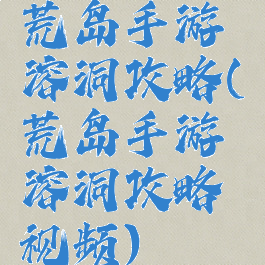 荒岛手游
溶洞攻略(
荒岛手游
溶洞攻略
视频)